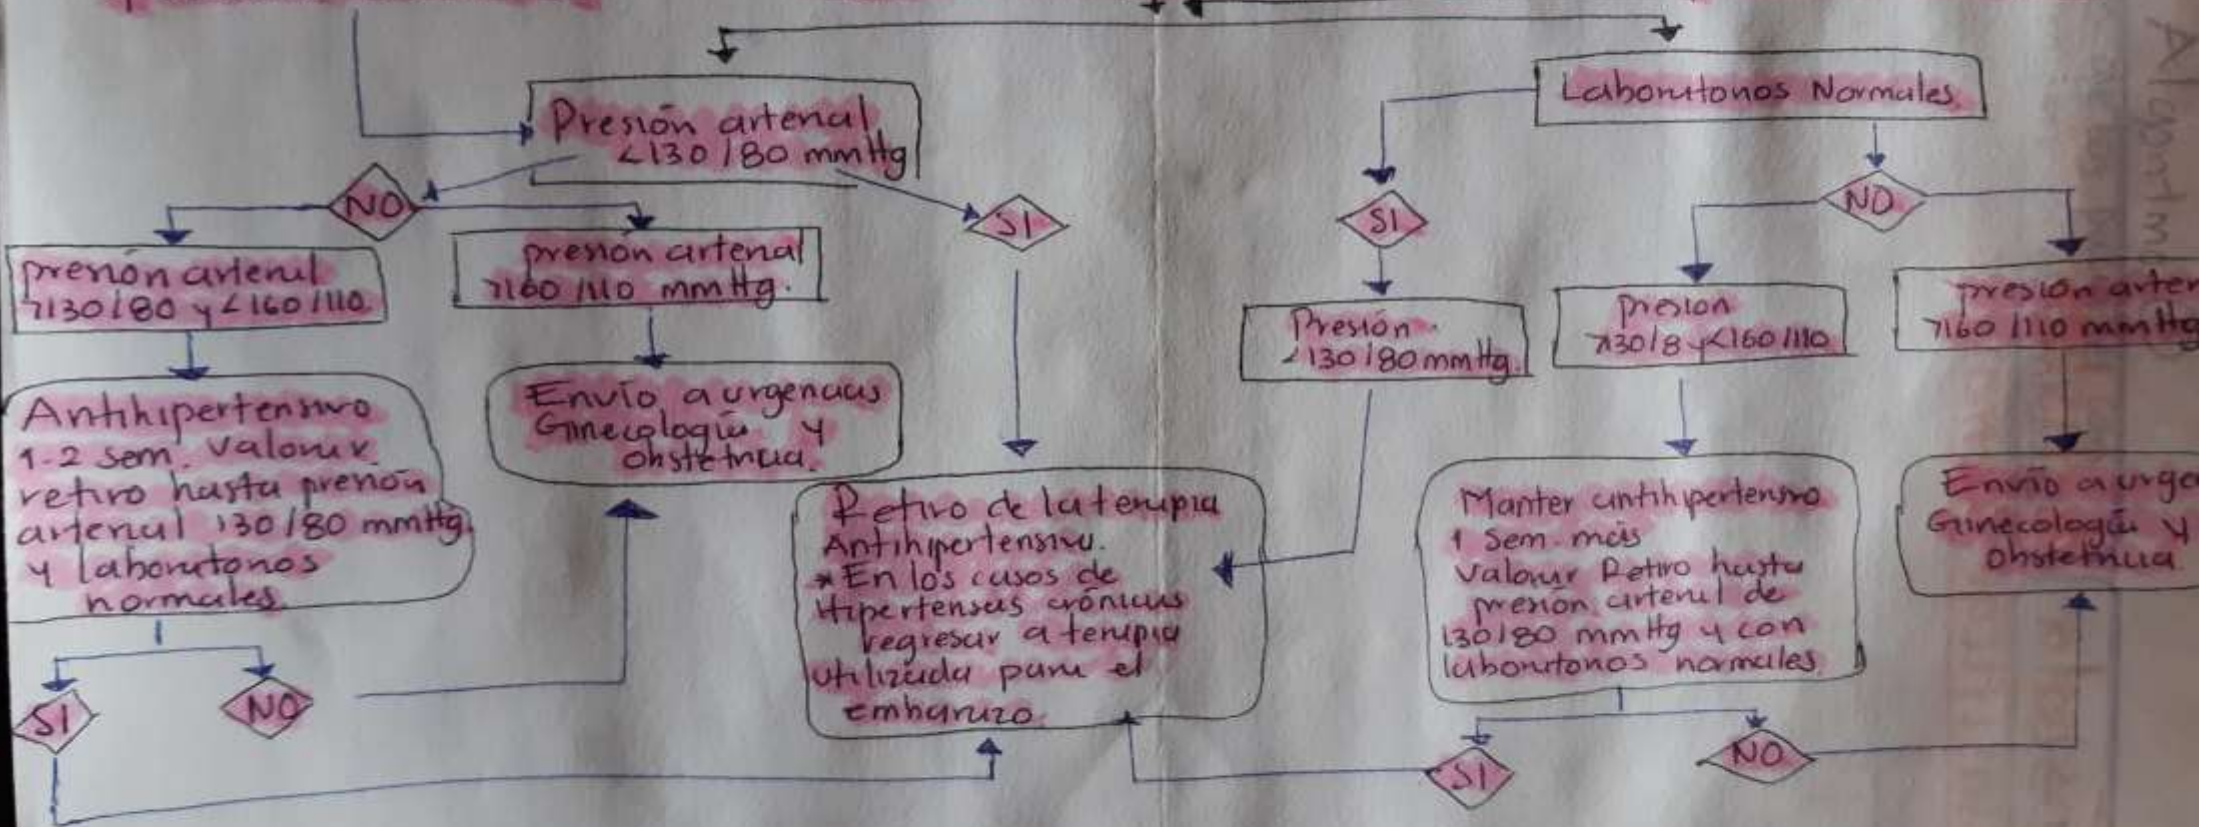 Presión arterial
<130/80 mmHg
Laboratorios Normales
NO
SI
SI
NO
presión arterial
>130/80 y <160/110
presión arterial
>160/110 mmHg.
Presión.
<130/80 mmHg.
Presion
>130/8 y <160/110
presion arter
>160/110 mmHg
Antihipertensivo
1-2 sem. Valorar
retiro hasta presión
arterial 130/80 mmHg.
y laboratorios
normales.
Envío a urgencias
Ginecología y
Obstetricia.
Retiro de la terapia
Antihipertensiva.
*En los casos de
Hipertensas crónicas
regresar a terapia
utilizada para el
embarazo.
Manter antihipertensivo
1 sem. más
Valorar Retiro hasta
presión arterial de
130/80 mmHg y con
laboratorios normales.
Envío a urge
Ginecología y
Obstetricia.
SI
NO
SI
NO